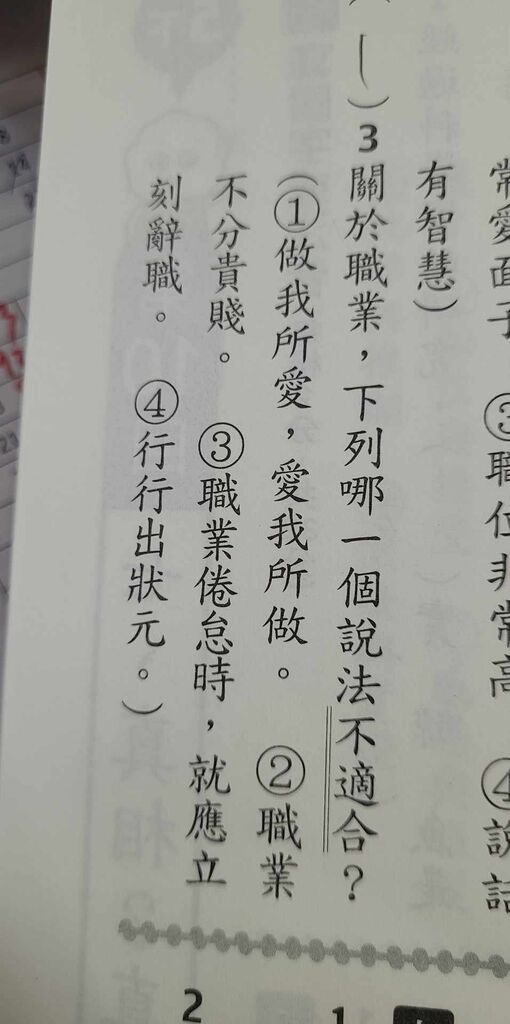 常愛面子 ③職位非常高 ④說話
有智慧）
（ ）3 關於職業，下列哪一個說法不適合？
（①做我所愛，愛我所做。 ②職業
不分貴賤。 ③職業倦怠時，就應立
刻辭職。 ④行行出狀元。）
1
2